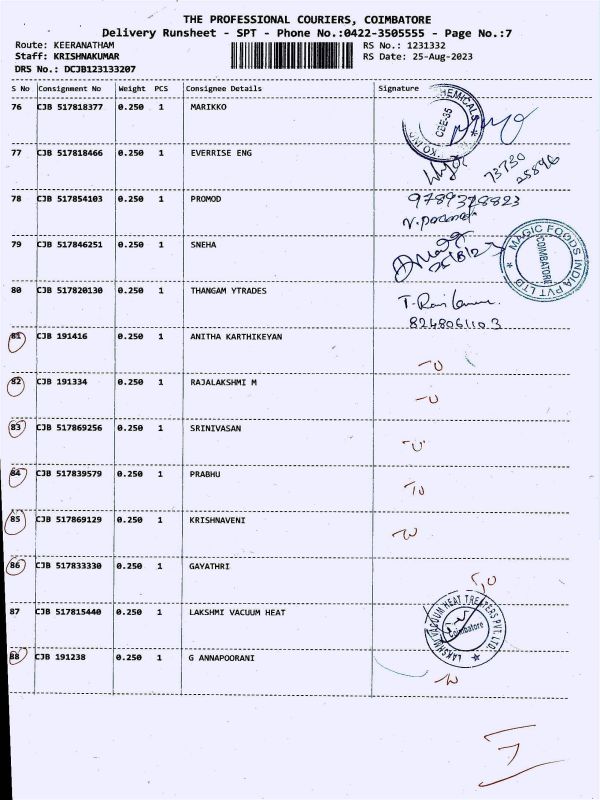 THE PROFESSIONAL COURIERS, COIMBATORE
Delivery Runsheet - SPT - Phone No.:0422-3505555 - Page No.:7
Route: KEERANATHAM RS No.: 1231332
Staff: KRISHNAKUMAR RS Date: 25-Aug-2023
DRS No.: DCJB123133207
S No Consignment No Weight PCS Consignee Details Signature
76 CJB 517818377 0.250 1 MARIKKO
CBE-35
77 CJB 517818466 0.250 1 EVERRISE ENG
73730
25896
78 CJB 517854103 0.250 1 PROMOD
9789378823
79 CJB 517846251 0.250 1 SNEHA
MAGIC FOODS INDIA PVT LTD
COIMBATORE
80 CJB 517820130 0.250 1 THANGAM YTRADES
8248061103
81 CJB 191416 0.250 1 ANITHA KARTHIKEYAN
82 CJB 191334 0.250 1 RAJALAKSHMI M
83 CJB 517869256 0.250 1 SRINIVASAN
84 CJB 517839579 0.250 1 PRABHU
85 CJB 517869129 0.250 1 KRISHNAVENI
86 CJB 517833330 0.250 1 GAYATHRI
87 CJB 517815440 0.250 1 LAKSHMI VACUUM HEAT
LAKSHMI VACUUM HEAT TREATERS PVT. LTD.
Coimbatore
88 CJB 191238 0.250 1 G ANNAPOORANI